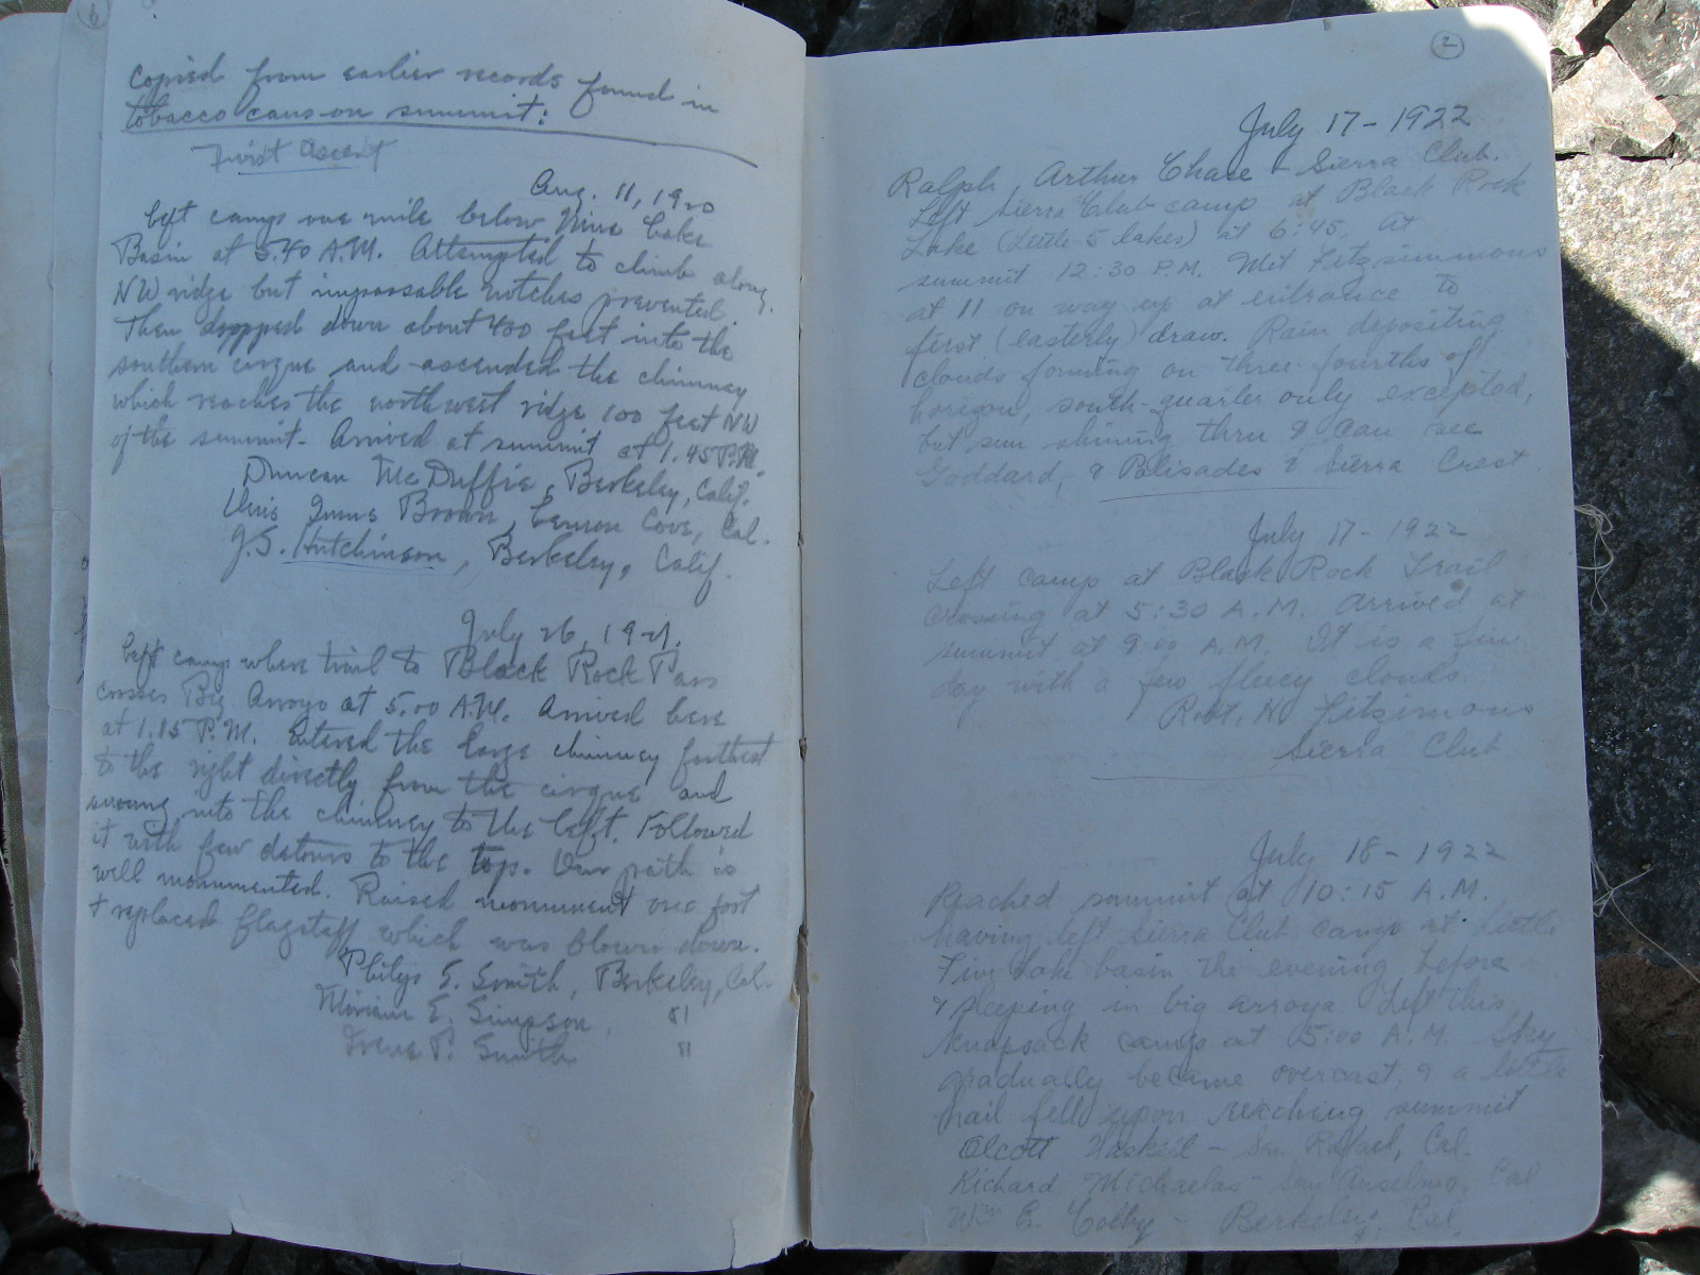 Copied from earlier records found in
tobacco cans on summit:
First Ascent
Aug. 11, 1920
Left camp one mile below Nine Lake
Basin at 5.40 A.M. Attempted to climb along
NW ridge but impassable notches prevented.
Then dropped down about 400 feet into the
southern cirque and ascended the chimney
which reaches the northwest ridge 100 feet NW
of the summit. Arrived at summit at 1.45 P.M.
Duncan McDuffie, Berkeley, Calif.
Onis Imus Brown, Lemon Cove, Cal.
J.S. Hutchinson, Berkeley, Calif.
July 26, 1921.
Left camp where trail to Black Rock Pass
crosses Big Arroyo at 5.00 A.M. Arrived here
at 1.15 P.M. Entered the large chimney farthest
to the right directly from the cirque and
swung into the chimney to the left. Followed
it with few detours to the top. Our path is
well monumented. Raised monument one foot
+ replaced flagstaff which was blown down.
S. Smith, Berkeley, Cal.
Miriam E. Simpson, "
Irene P. Smith "
2
July 17 - 1922
Ralph, Arthur Chase + Sierra Club.
Left Sierra Club camp at Black Rock
Lake (Little 5 lakes) at 6:45. At
summit 12:30 P.M. Met Fitzsimmons
at 11 on way up at entrance to
first (easterly) draw. Rain depositing
clouds forming on three-fourths of
horizon, south-quarter only excepted,
but sun shining thru & can see
Goddard, & Palisades & Sierra Crest.
July 17 - 1922
Left camp at Black Rock Trail
crossing at 5:30 A.M. Arrived at
summit at 9:00 A.M. It is a fine
day with a few fleecy clouds.
Robt. N. Fitzimons
Sierra Club
July 18 - 1922
Reached summit at 10:15 A.M.
having left Sierra Club camp at Little
Five Lake basin the evening before
& sleeping in big arroya. Left this
knapsack camp at 5:00 A.M. Sky
gradually became overcast, & a little
hail fell upon reaching summit
Olcott Haskell - San Rafael, Cal.
Richard Michaelas - San Anselmo, Cal
Wm E. Colby - Berkeley, Cal.